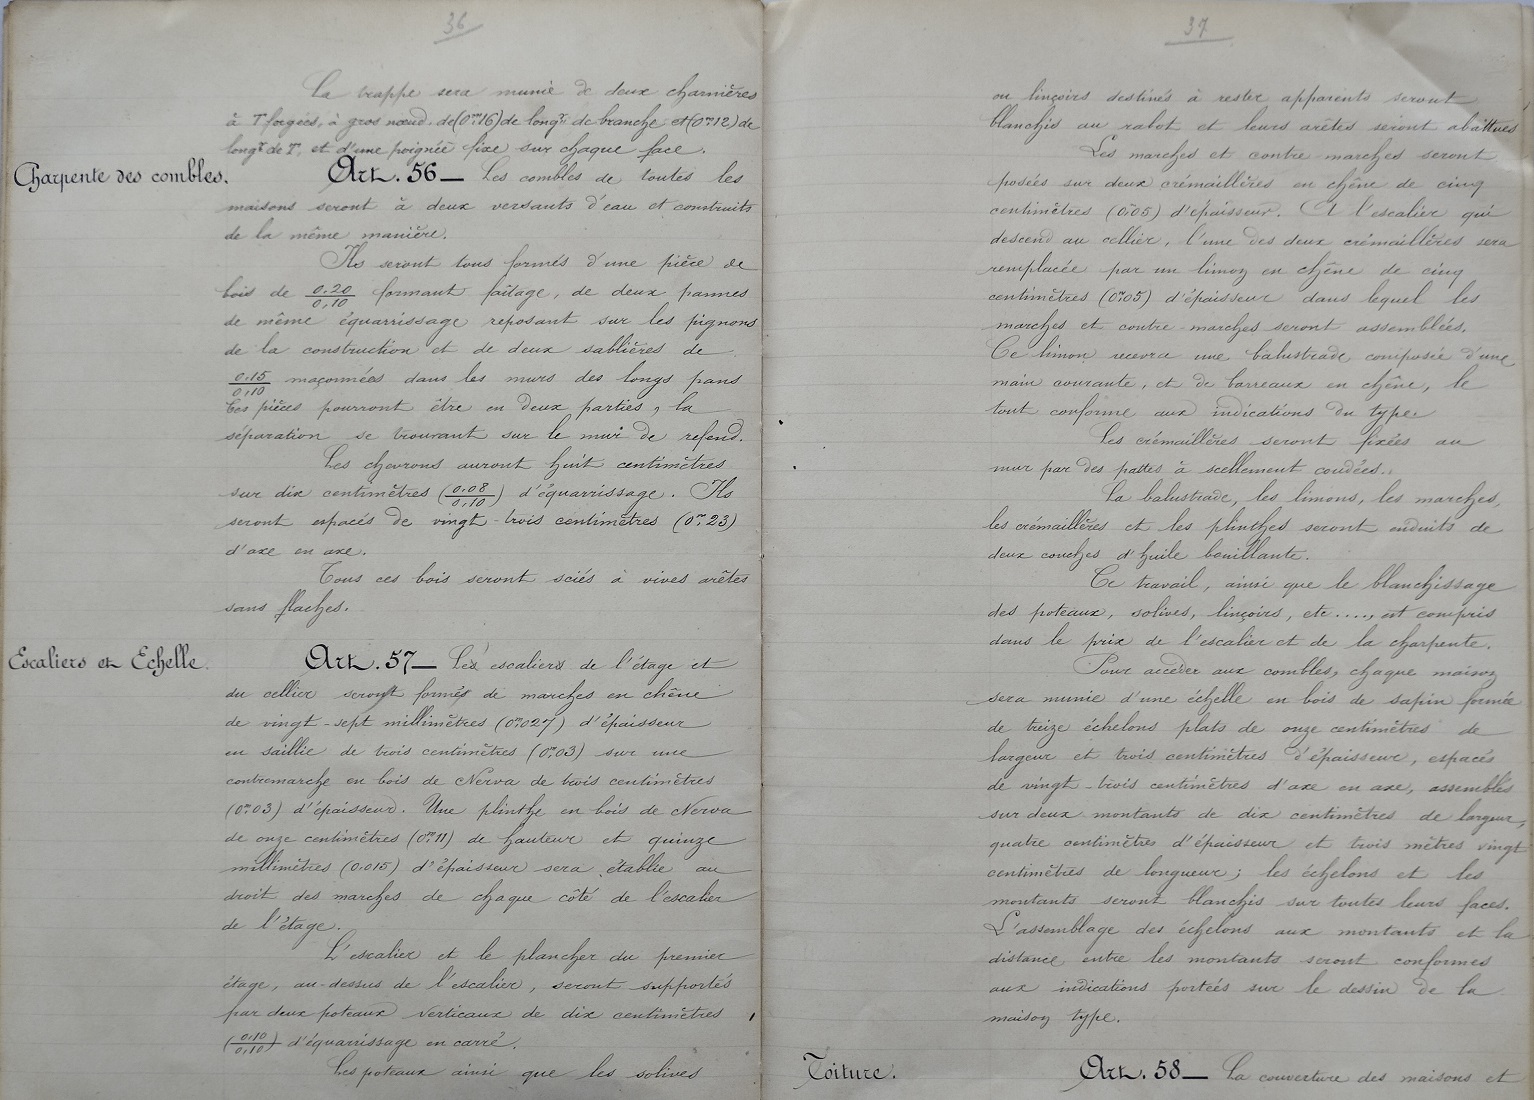 36
La trappe sera munie de deux charnières
à T forgées, à gros nœud. de (0,m16) de longr. de branche et (0m12) de
longr de T, et d'une poignée fixe sur chaque face.
Charpente des combles.
Art. 56 — Les combles de toutes les
maisons seront à deux versants d'eau et construits
de la même manière.
Ils seront tous formés d'une pièce de
bois de 0,20/0,10 formant faîtage, de deux pannes
de même équarrissage reposant sur les pignons
de la construction et de deux sablières de
0,15/0,10 maçonnées dans les murs des longs pans
Ces pièces pourront être en deux parties, la
séparation se trouvant sur le mur de refend.
Les chevrons auront huit centimètres
sur dix centimètres (0,08/0,10) d'équarrissage. Ils
seront espacés de vingt-trois centimètres (0m,23)
d'axe en axe.
Tous ces bois seront sciés à vives arêtes
sans flaches.
Escaliers et Echelle.
Art. 57 — Les escaliers de l'étage et
du cellier seront formés de marches en chêne
de vingt-sept millimètres (0m027) d'épaisseur
en saillie de trois centimètres (0m,03) sur une
contremarche en bois de Nerva de trois centimètres
(0m,03) d'épaisseur. Une plinthe en bois de Nerva
de onze centimètres (0m11) de hauteur et quinze
millimètres (0.015) d'épaisseur sera établie au
droit des marches de chaque côté de l'escalier
de l'étage.
L'escalier et le plancher du premier
étage, au-dessus de l'escalier, seront supportés
par deux poteaux verticaux de dix centimètres
(0,10/0,10) d'équarrissage en carré.
Les poteaux ainsi que les solives
37
ou linçoirs destinés à rester apparents seront
blanchis au rabot et leurs arêtes seront abattues
Les marches et contre marches seront
posées sur deux crémaillères en chêne de cinq
centimètres (0m05) d'épaisseur. A l'escalier qui
descend au cellier, l'une des deux crémaillères sera
remplacée par un limon en chêne de cinq
centimètres (0m05) d'épaisseur dans lequel les
marches et contre-marches seront assemblées.
Ce limon recevra une balustrade composée d'une
main courante, et de barreaux en chêne, le
tout conforme aux indications du type.
Les crémaillères seront fixées au
mur par des pattes à scellement coudées.
La balustrade, les limons, les marches,
les crémaillères et les plinthes seront enduits de
deux couches d'huile bouillante.
Ce travail, ainsi que le blanchissage
des poteaux, solives, linçoirs, etc ...., est compris
dans le prix de l'escalier et de la charpente.
Pour accéder aux combles, chaque maison
sera munie d'une échelle en bois de sapin formée
de treize échelons plats de onze centimètres de
largeur et trois centimètres d'épaisseur, espacés
de vingt-trois centimètres d'axe en axe, assemblés
sur deux montants de dix centimètres de largeur,
quatre centimètres d'épaisseur et trois mètres vingt
centimètres de longueur; les échelons et les
montants seront blanchis sur toutes leurs faces.
L'assemblage des échelons aux montants et la
distance entre les montants seront conformes
aux indications portées sur le dessin de la
maison type.
Toiture.
Art. 58 — La couverture des maisons et